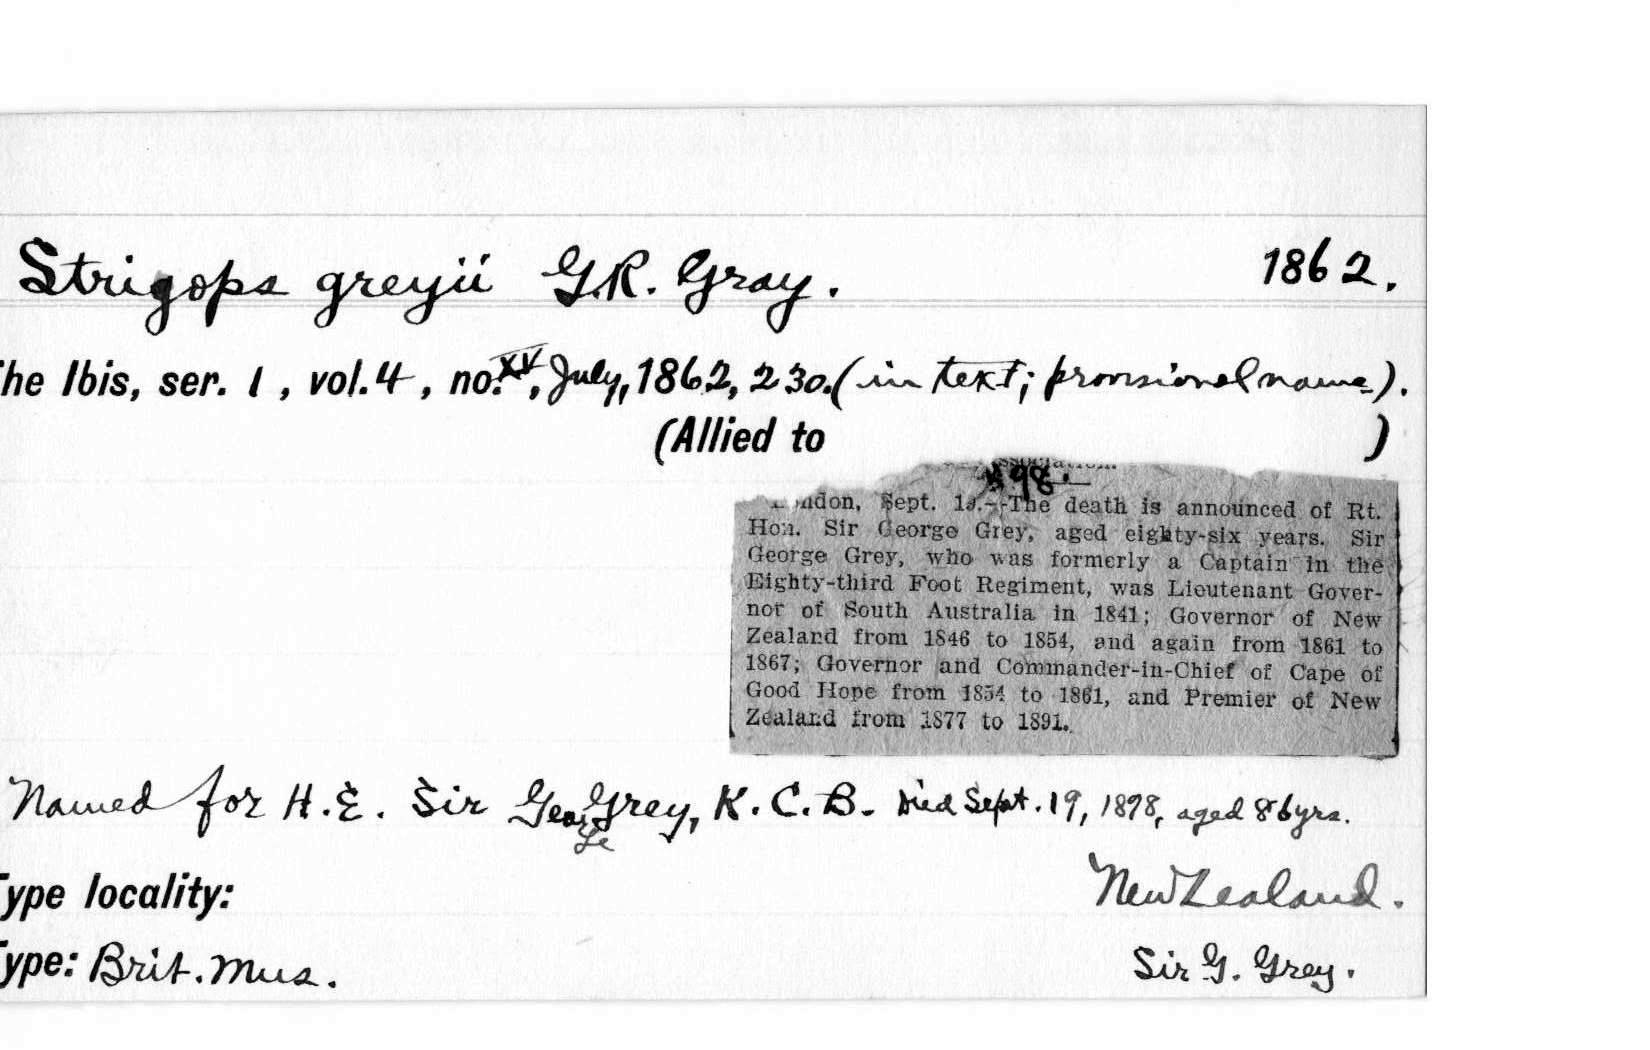 Strigops greyii G.R. Gray. 1862.
he Ibis, ser. 1, vol. 4, no. XV, July, 1862, 230. (in text; provisional name).
(Allied to )
98.
ndon, Sept. 19.--The death is announced of Rt.
Hon. Sir George Grey, aged eighty-six years. Sir
George Grey, who was formerly a Captain in the
Eighty-third Foot Regiment, was Lieutenant Gover-
nor of South Australia in 1841; Governor of New
Zealand from 1846 to 1854, and again from 1861 to
1867; Governor and Commander-in-Chief of Cape of
Good Hope from 1854 to 1861, and Premier of New
Zealand from 1877 to 1891.
Named for H.E. Sir George Grey, K.C.B. Died Sept. 19, 1898, aged 86 yrs.
ype locality: New Zealand.
ype: Brit. Mus. Sir G. Grey.